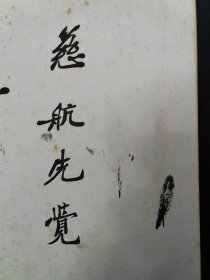 慈航先覺